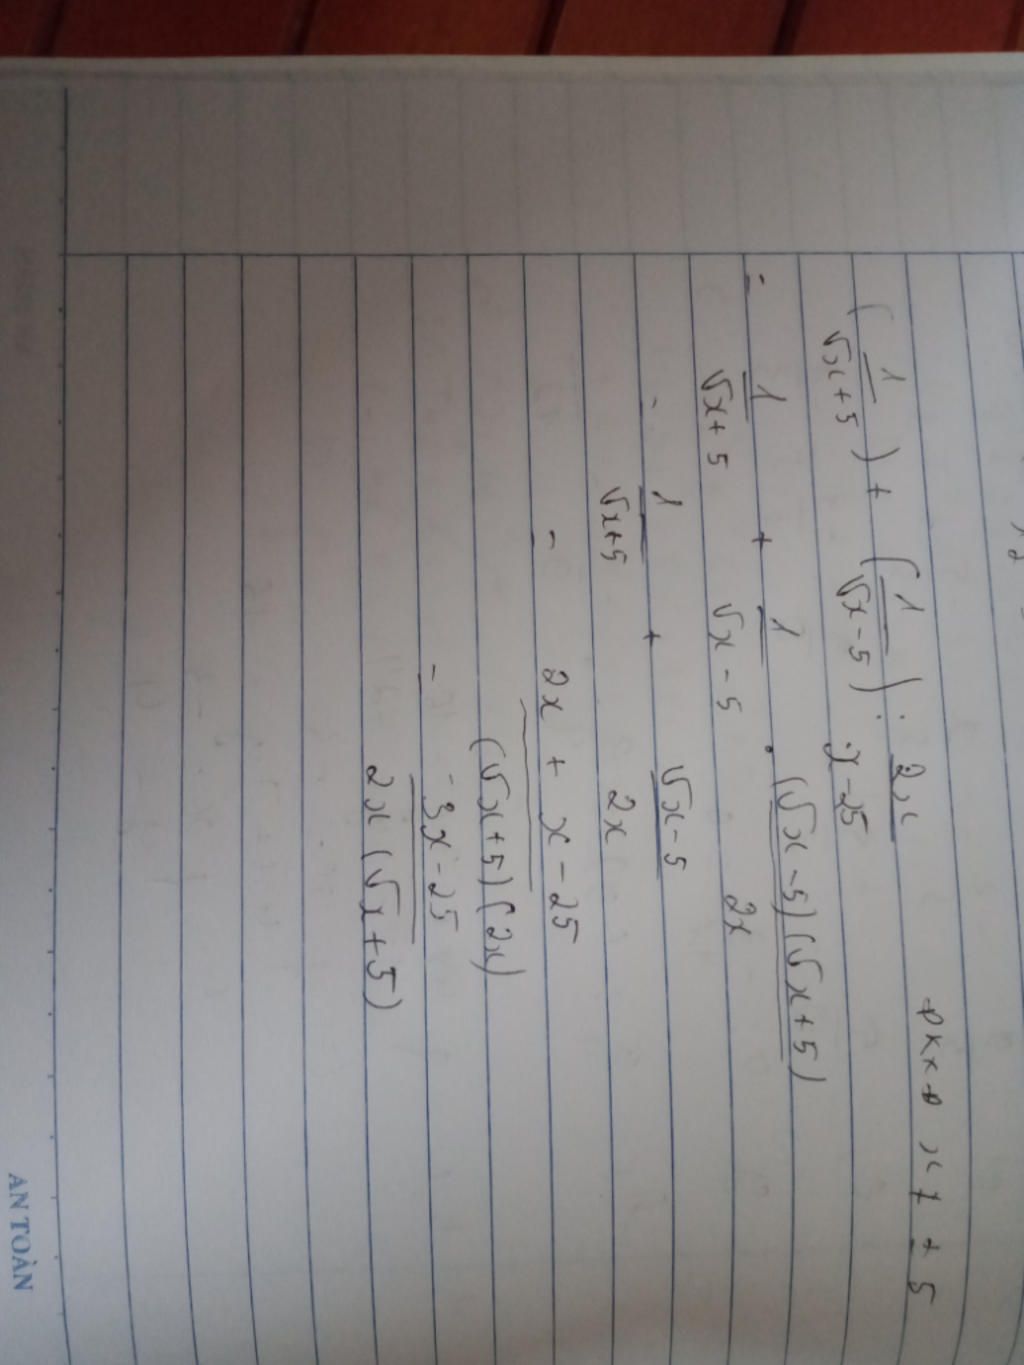 ĐKXĐ x ≠ ± 5
(1/(√x+5)) + (1/(√x-5)) : 2x/(x-25)
= 1/(√x+5) + 1/(√x-5) . (√x-5)(√x+5)/2x
= 1/(√x+5) + (√x-5)/2x
= (2x + x - 25)/((√x+5)(2x))
= (3x-25)/(2x(√x+5))
AN TOÀN